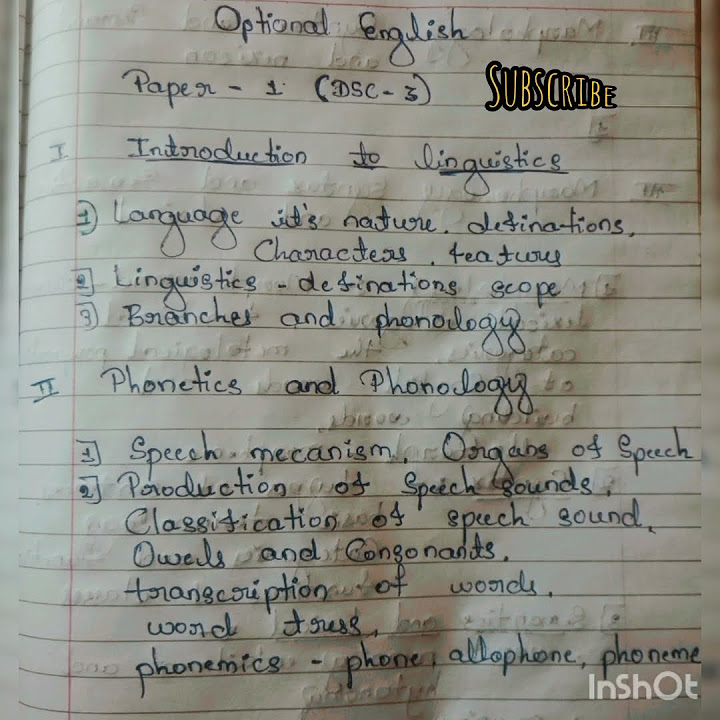 Optional English
Paper - 1. (DSC-3)
SUBSCRIBE
I Introduction to linguistics
1) Language it's nature. definations,
Characters. featurs
2] Linguistics - definations scope
3) Branches and phonology
II Phonetics and Phonology
1] Speech mecanism, Organs of Speech
2] Production of Speech sounds,
Classification of speech sound,
Owels and Consonants.
transcription of words,
word truss,
phonemics - phone, allophone, phoneme
InShOt